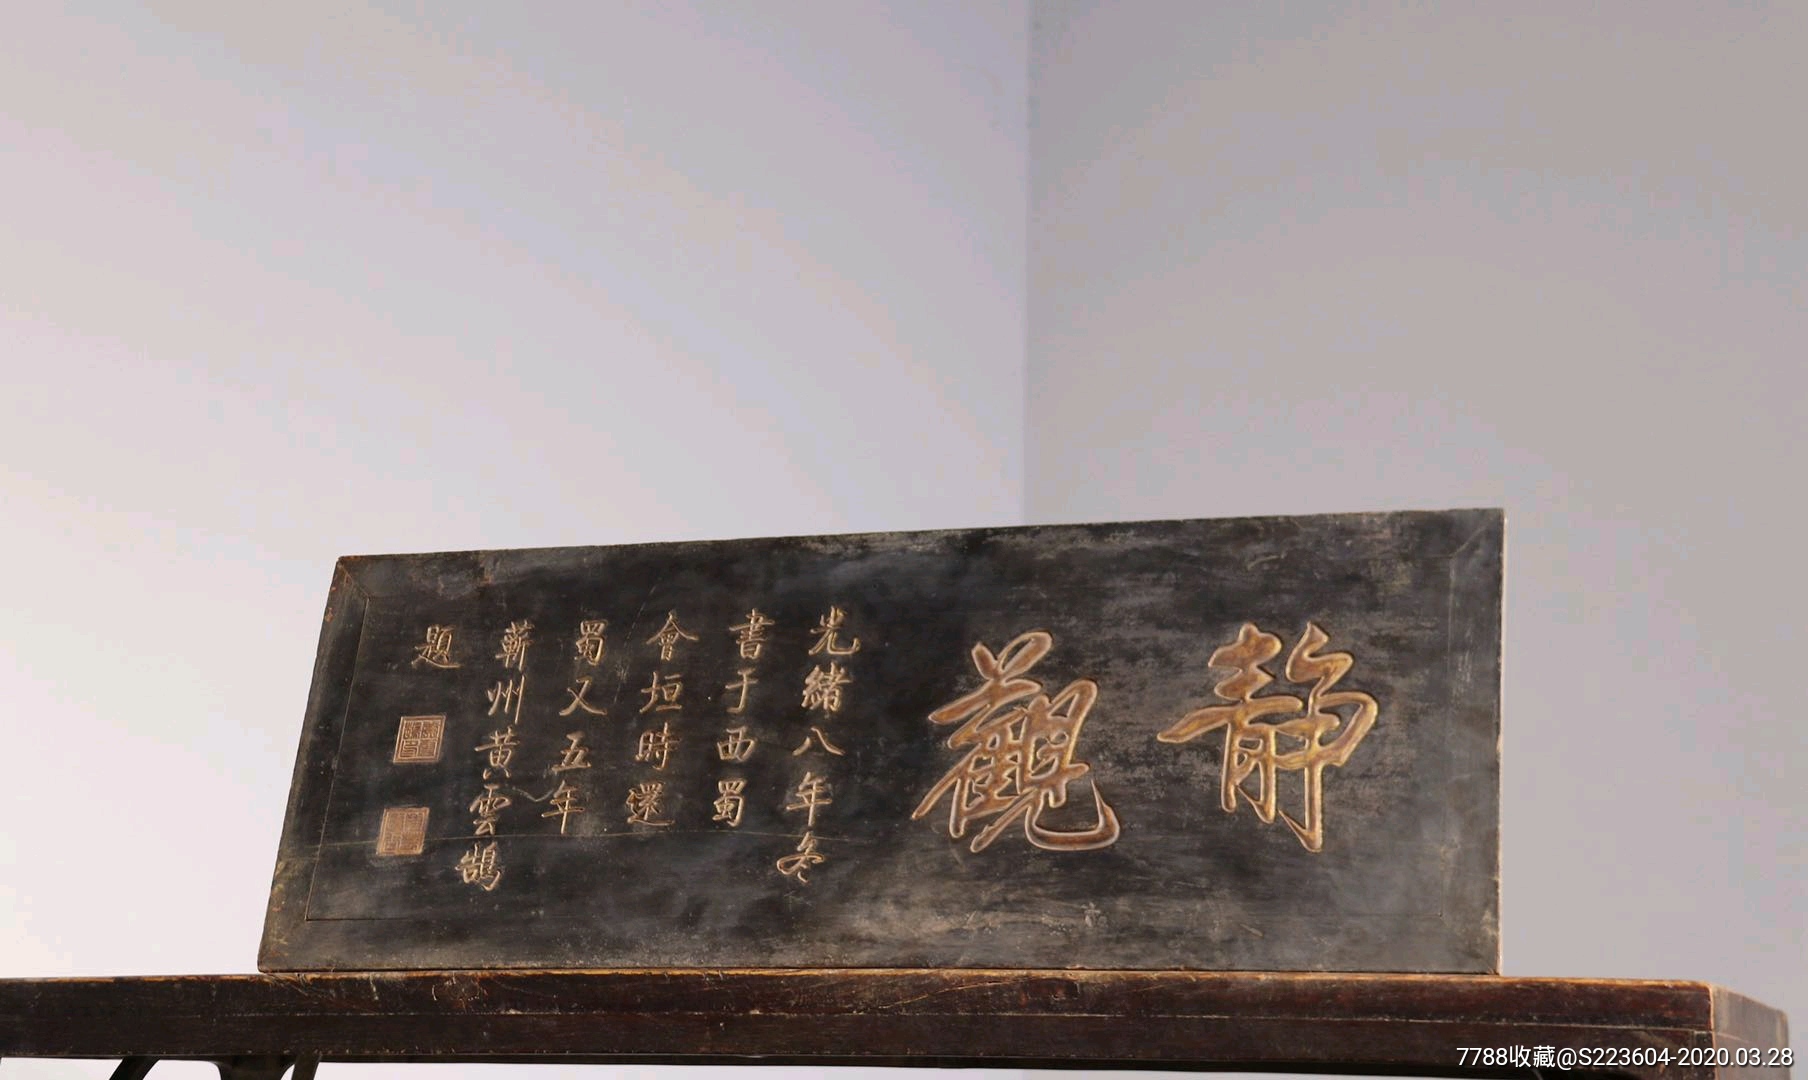 静觀
光緒八年冬
書于西蜀
會垣時還
蜀又五年
蘄州黃雲鵠
題
7788收藏@S223604-2020.03.28